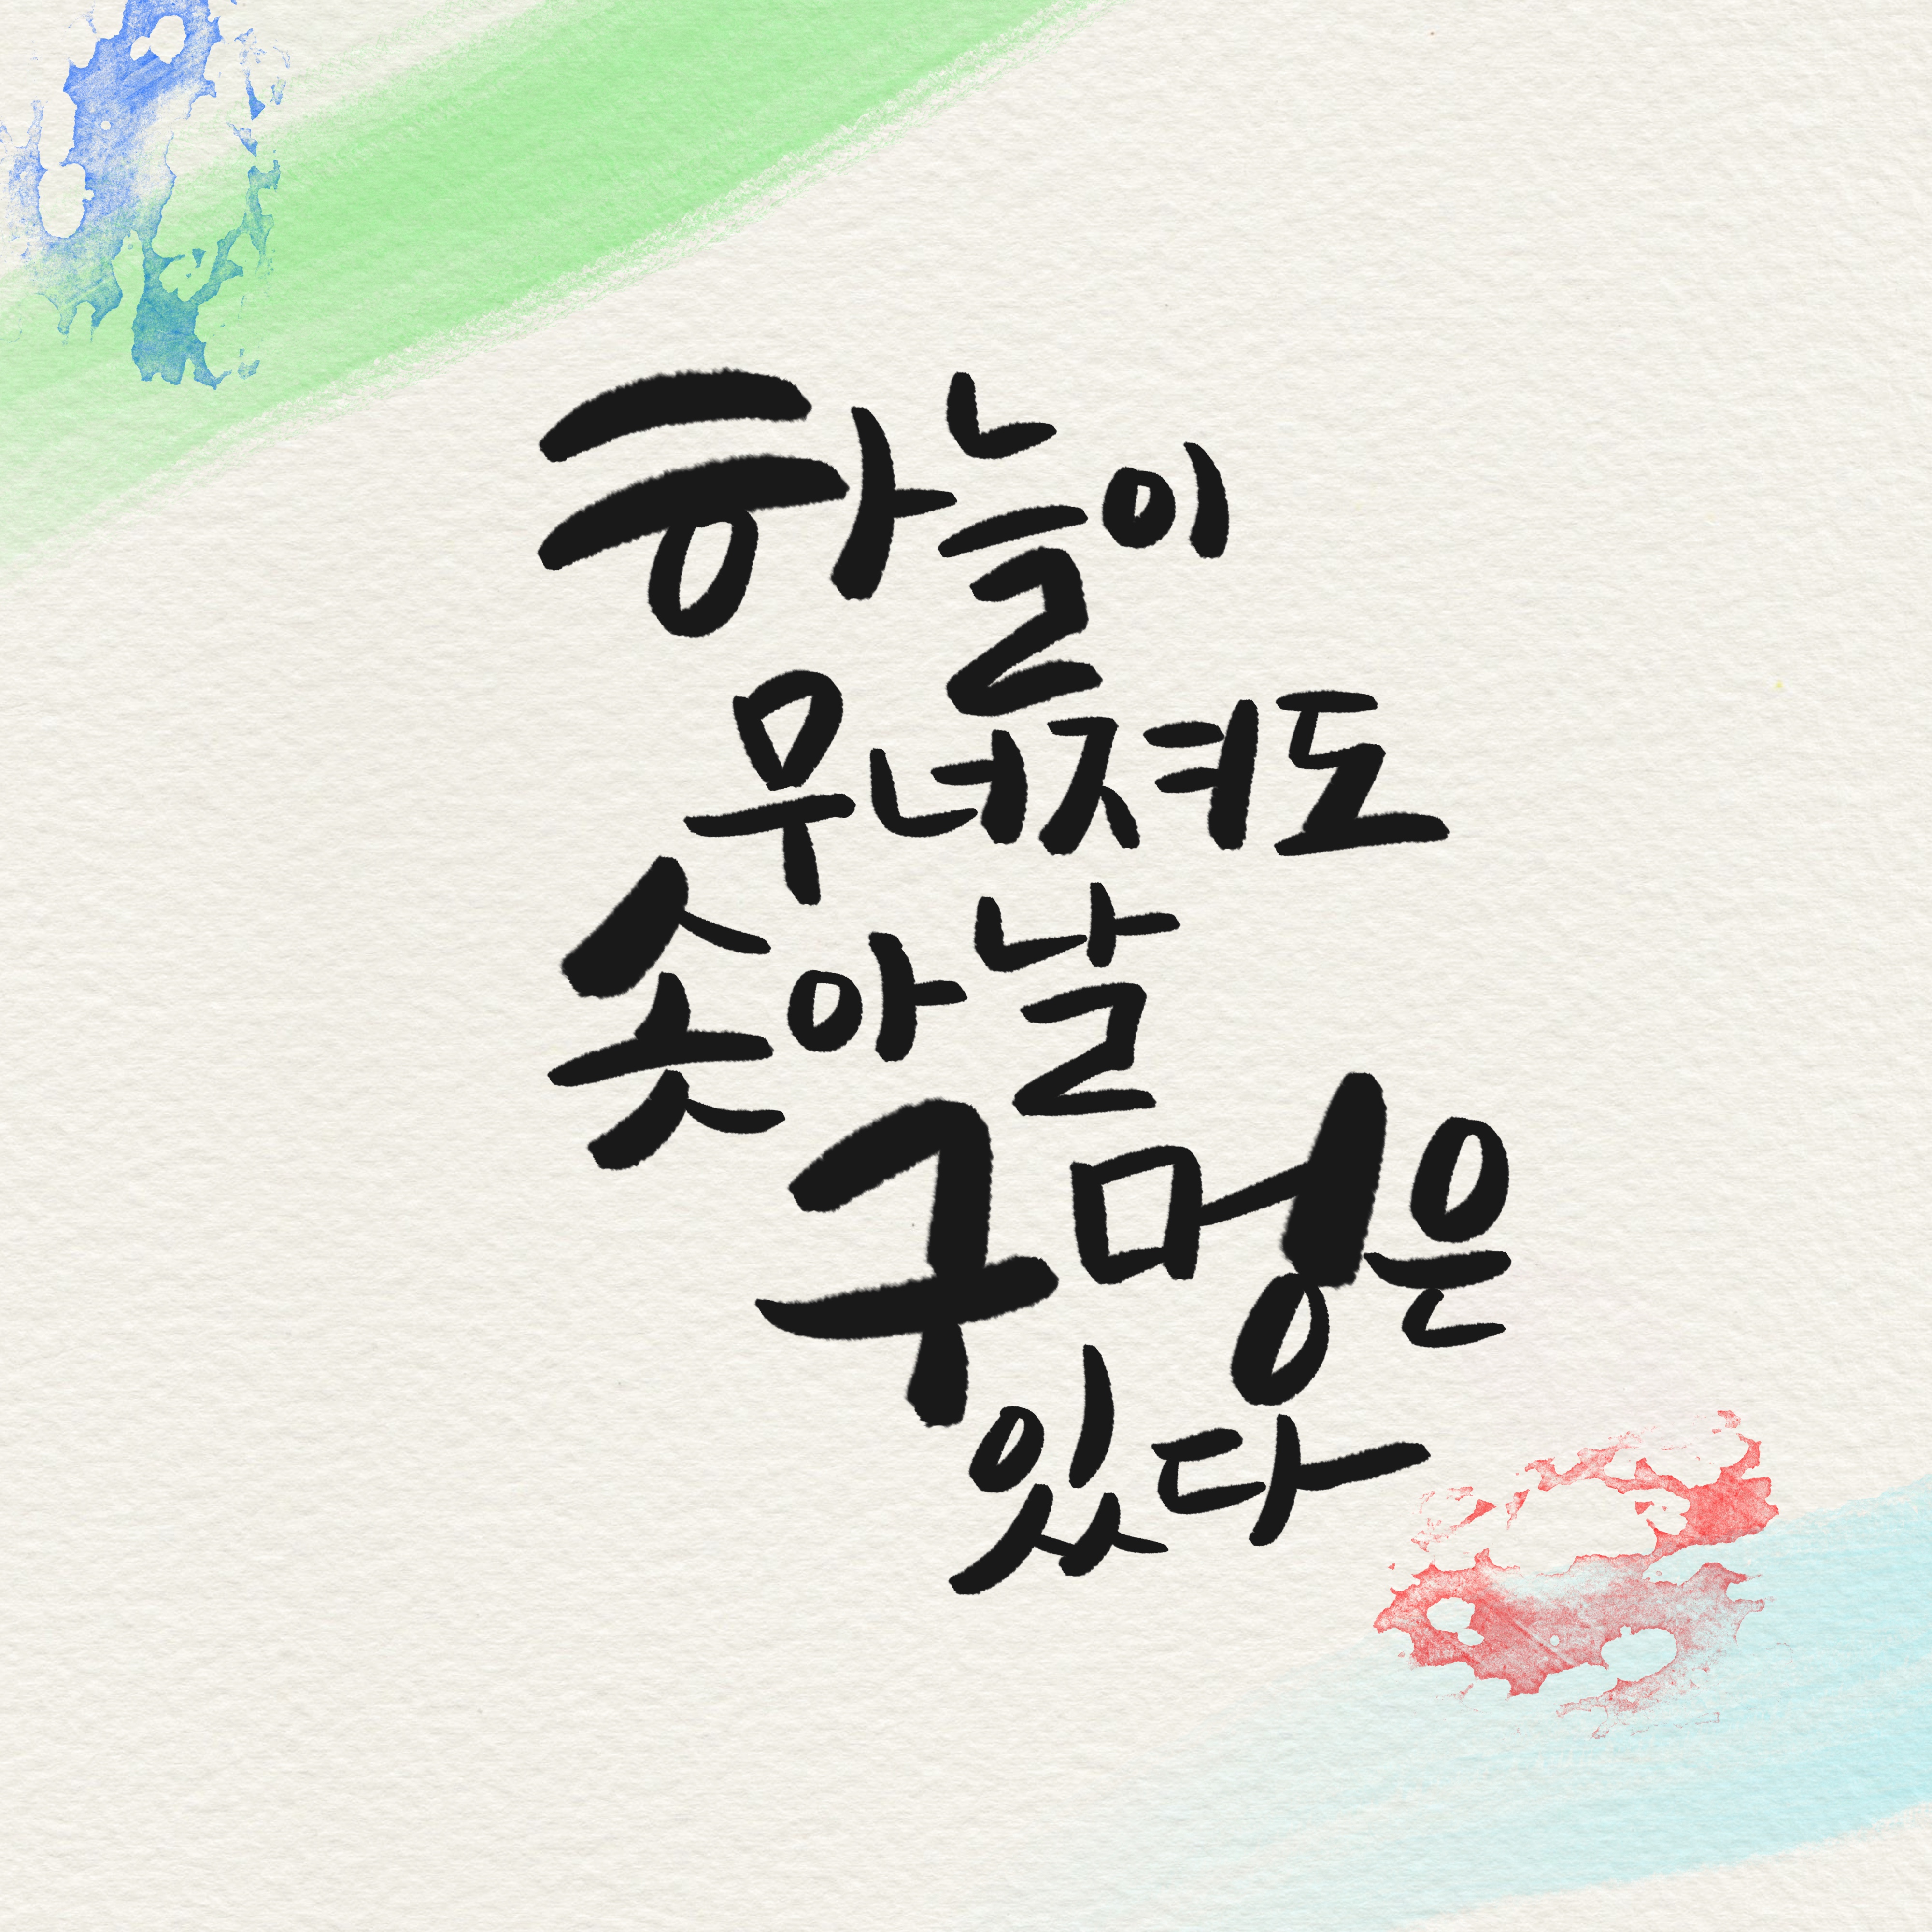 하늘이
무너져도
솟아날
구멍은
있다